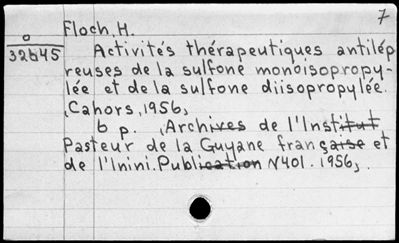 7
Floch, H.
o
32645
Activités thérapeutiques antilép
reuses de la sulfone monoisopropy-
lée et de la sulfone diisopropylée.
(Cahors, 1956)
6 p. (Archives de l'Institut
Pasteur de la Guyane française et
de l'Inini. Publication N401. 1956).